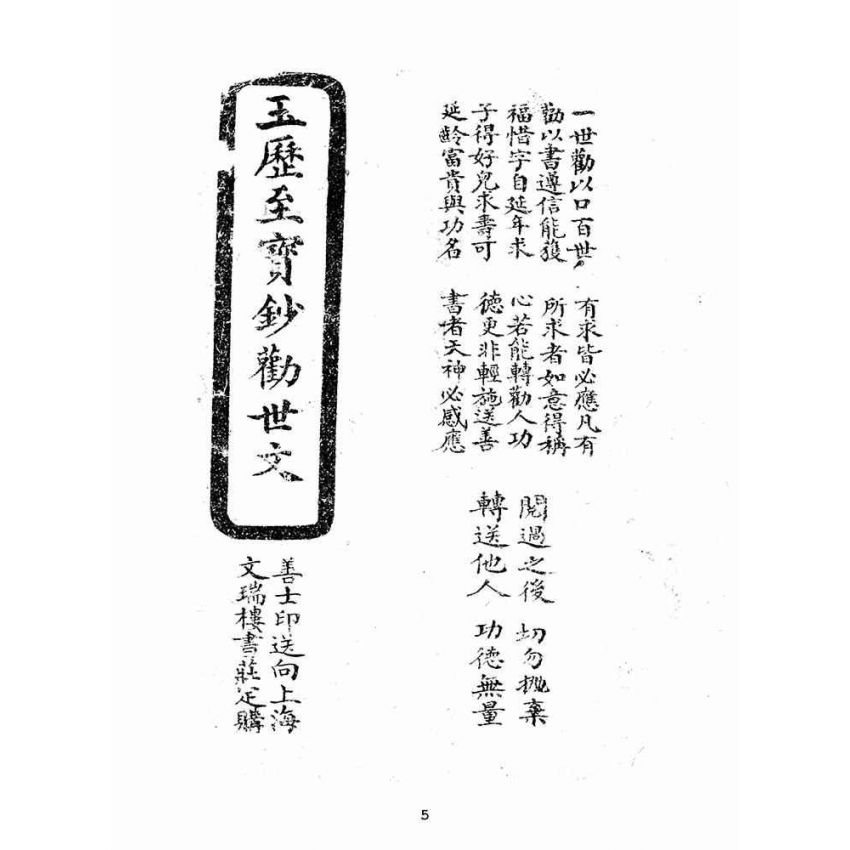 一世勸以口百世
勸以書遵信能獲
福惜字自延年求
子得好兒求壽可
延齡富貴與功名
有求皆必應凡有
所求者如意得稱
心若能轉勸人功
德更非輕施送善
書者天神必感應
閱過之後 切勿拋棄
轉送他人 功德無量
玉歷至寶鈔勸世文
善士印送向上海
文瑞樓書莊定購
5